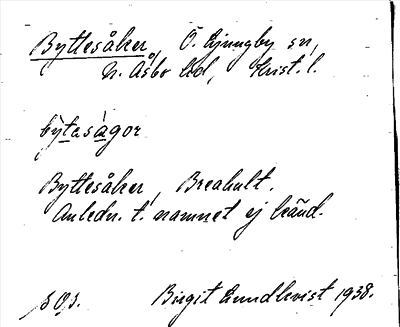 Byttesåker, Ö. Ljungby sn,
N. Åsbo hd, Krist. l.
bỳtesàgor
Byttesåker, Breahult.
Anledn. t. namnet ej känd.
Birgit Lundkvist 1938.